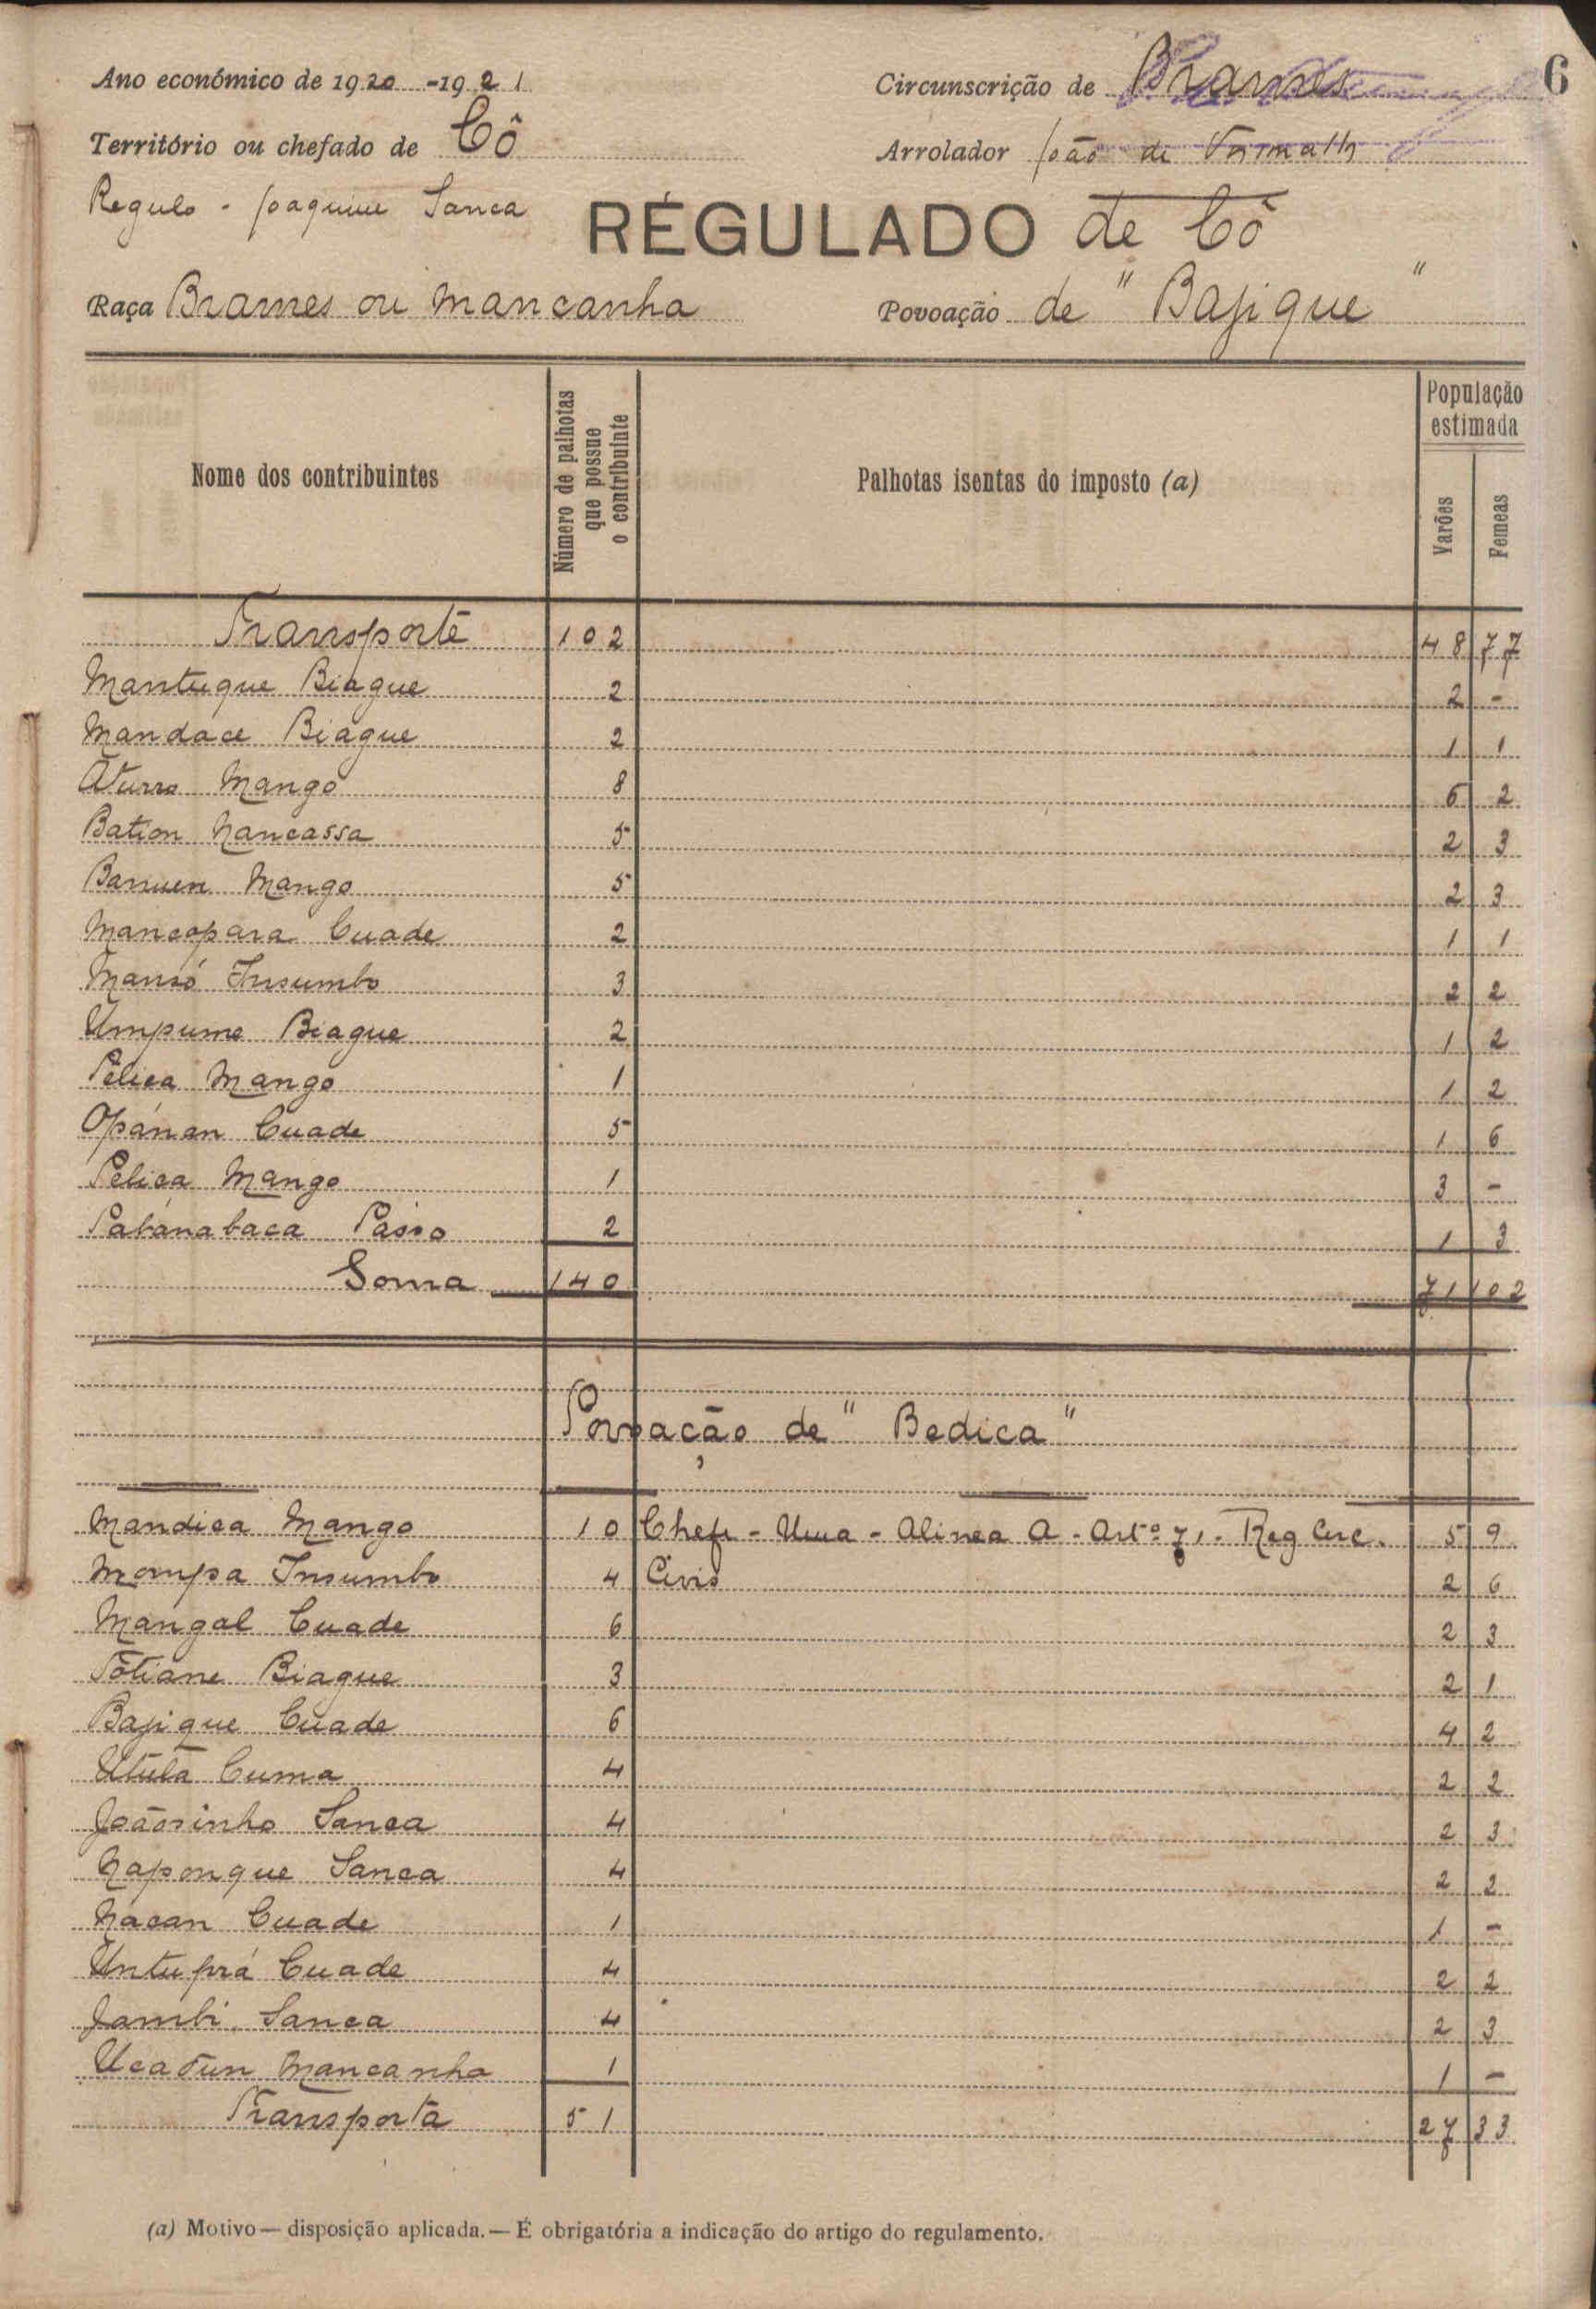 6
Ano económico de 1920-1921
Circunscrição de Brames
Território ou chefado de Cô
Arrolador João de
Regulo - Joaquim Sanca
RÉGULADO de Cô
Raça Brames ou Mancanha
Povoação de "Bajique"
Nome dos contribuintes
Número de palhotas que possue o contribuinte
Palhotas isentas do imposto (a)
População estimada
Varões
Femeas
Transporte 102 48 77
Mantuque Biague 2 2 -
Mandace Biague 2 1 1
Aturro Mango 8 6 2
Bation Nancassa 5 2 3
Banuen Mango 5 2 3
Mancopara Cuade 2 1 1
Mansó Insumbo 3 2 2
Umpume Biague 2 1 2
Pelica Mango 1 1 2
Opánan Cuade 5 1 6
Pelica Mango 1 3 -
Pabánabaca Pásso 2 1 3
Soma 140 71 102
Povoação de "Bedica"
Mandica Mango 10 Chefe - Uma - Alinea A - Artº 71 - Reg Circ. 5 9
Mompa Insumbo 4 Civis 2 6
Mangal Cuade 6 2 3
Tótiane Biague 3 2 1
Bajique Cuade 6 4 2
Utula Cuma 4 2 2
Joãosinho Sanca 4 2 3
Naponque Sanca 4 2 2
Nacan Cuade 1 1 -
Untuprá Cuade 4 2 2
Jambi Sanca 4 2 3
Ucatun Mancanha 1 1 -
Transporta 51 27 33
(a) Motivo — disposição aplicada. — É obrigatória a indicação do artigo do regulamento.